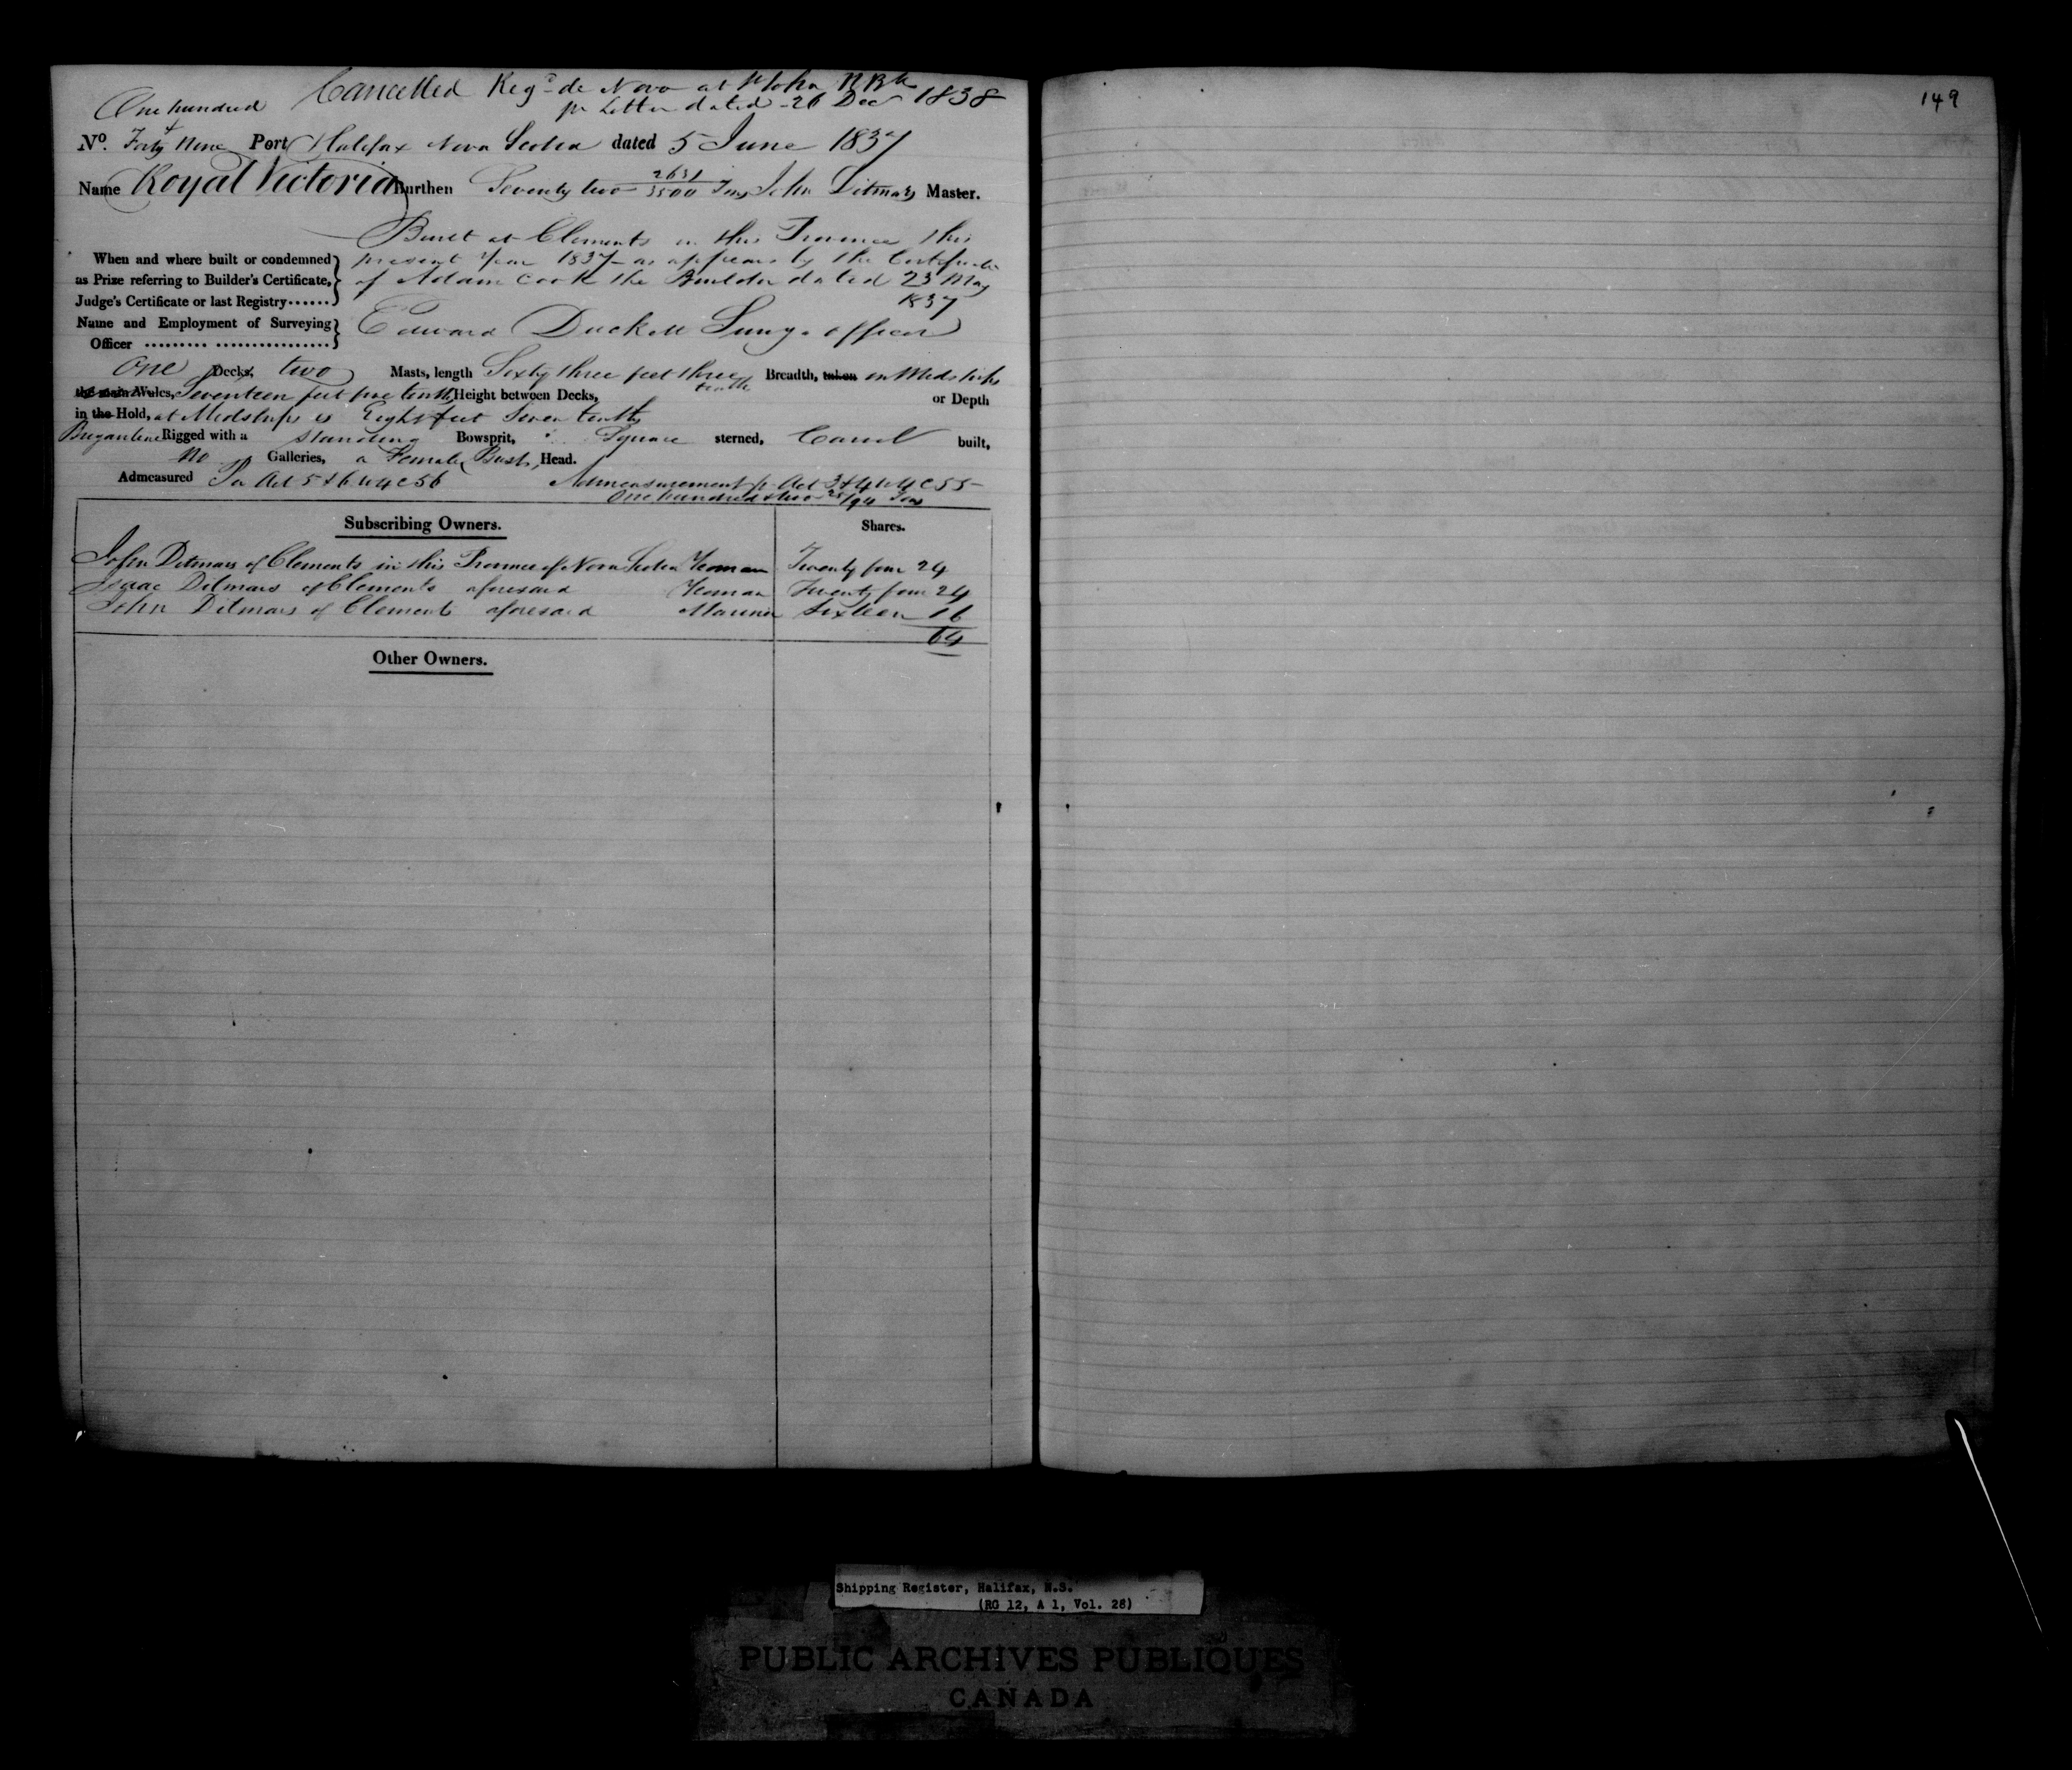 Cancelled Regd de Novo at St John N Bk
One hundred pr Letter dated 26 Dec 1838
149
No. Forty Nine Port Halifax Nova Scotia dated 5 June 1837
Name Royal Victoria Burthen Seventy two 2631/3500 Tons John Ditmars Master.
Built at Clements in this Province this
When and where built or condemned present Year 1837 as appears by the Certificate
as Prize referring to Builder's Certificate, of Adam Cook the Builder dated 23 May
Judge's Certificate or last Registry...... 1837
Name and Employment of Surveying Edward Duckett Survg. officer
Officer ......... ................
One Decks, two Masts, length Sixty three feet three tenths Breadth, taken in Midships
the main Wales, Seventeen feet five tenths, Height between Decks, or Depth
in the Hold, at Midships is Eight feet Seven tenths
Brigantine Rigged with a standing Bowsprit, Square sterned, Carvel built,
No Galleries, a Female Bust, Head.
Admeasured Pr Act 5 & 6 W 4 C 56 Admeasurement pr Act 3 & 4 W 4 C 55
One hundred & two 25/94 Tons
Subscribing Owners. Shares.
John Ditmars of Clements in this Province of Nova Scotia Yeoman Twenty four 24
Isaac Ditmars of Clements aforesaid Yeoman Twenty four 24
John Ditmars of Clements aforesaid Mariner Sixteen 16
64
Other Owners.
Shipping Register, Halifax, N.S.
(RG 12, A 1, Vol. 28)
PUBLIC ARCHIVES PUBLIQUES
CANADA